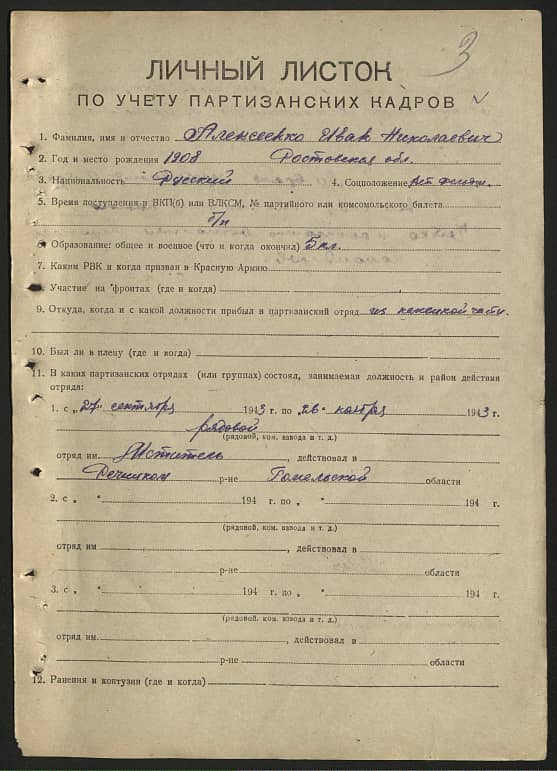 3
ЛИЧНЫЙ ЛИСТОК
ПО УЧЕТУ ПАРТИЗАНСКИХ КАДРОВ
1. Фамилия, имя и отчество Алексеенко Иван Николаевич
2. Год и место рождения 1908 Ростовская обл.
3. Национальность Русский 4. Соцположение
5. Время поступления в ВКП(б) или ВЛКСМ, № партийного или комсомольского билета
б/п
6. Образование: общее и военное (что и когда окончил) 5 кл.
7. Каким РВК и когда призван в Красную Армию
8. Участие на фронтах (где и когда)
9. Откуда, когда и с какой должности прибыл в партизанский отряд из
10. Был ли в плену (где и когда)
11. В каких партизанских отрядах (или группах) состоял, занимаемая должность и район действия
отряда:
1. с „27" сентября 1943 г. по „26" ноября 1943 г.
рядовой
(рядовой, ком. взвода и т. д.)
отряд им. Мститель, действовал в
Речицком р-не Гомельской области
2. с „ " 194 г. по „ " 194 г.
(рядовой, ком. взвода и т. д.)
отряд им , действовал в
р-не области
3. с „ " 194 г. по „ " 194 г.
(рядовой, ком. взвода и т. д.)
отряд им. , действовал в
р-не области
12. Ранения и контузии (где и когда)